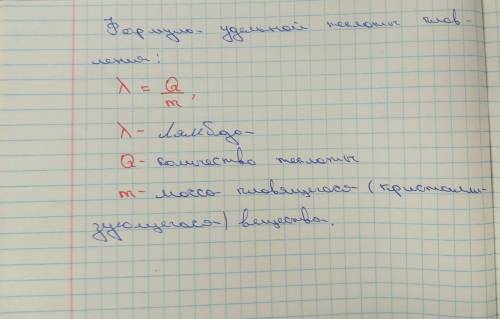 Формула удельной теплоты плав-
ления:
λ = Q/m,
λ - Лямбда
Q - количество теплоты
m - масса плавящегося (кристалли-
зующегося) вещества.